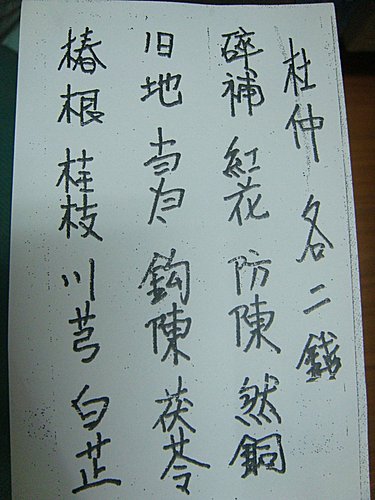 椿根 桂枝 川芎 白芷
旧地 当归 鈎陳 茯苓
碎補 紅花 防陳 然銅
杜仲 各二錢